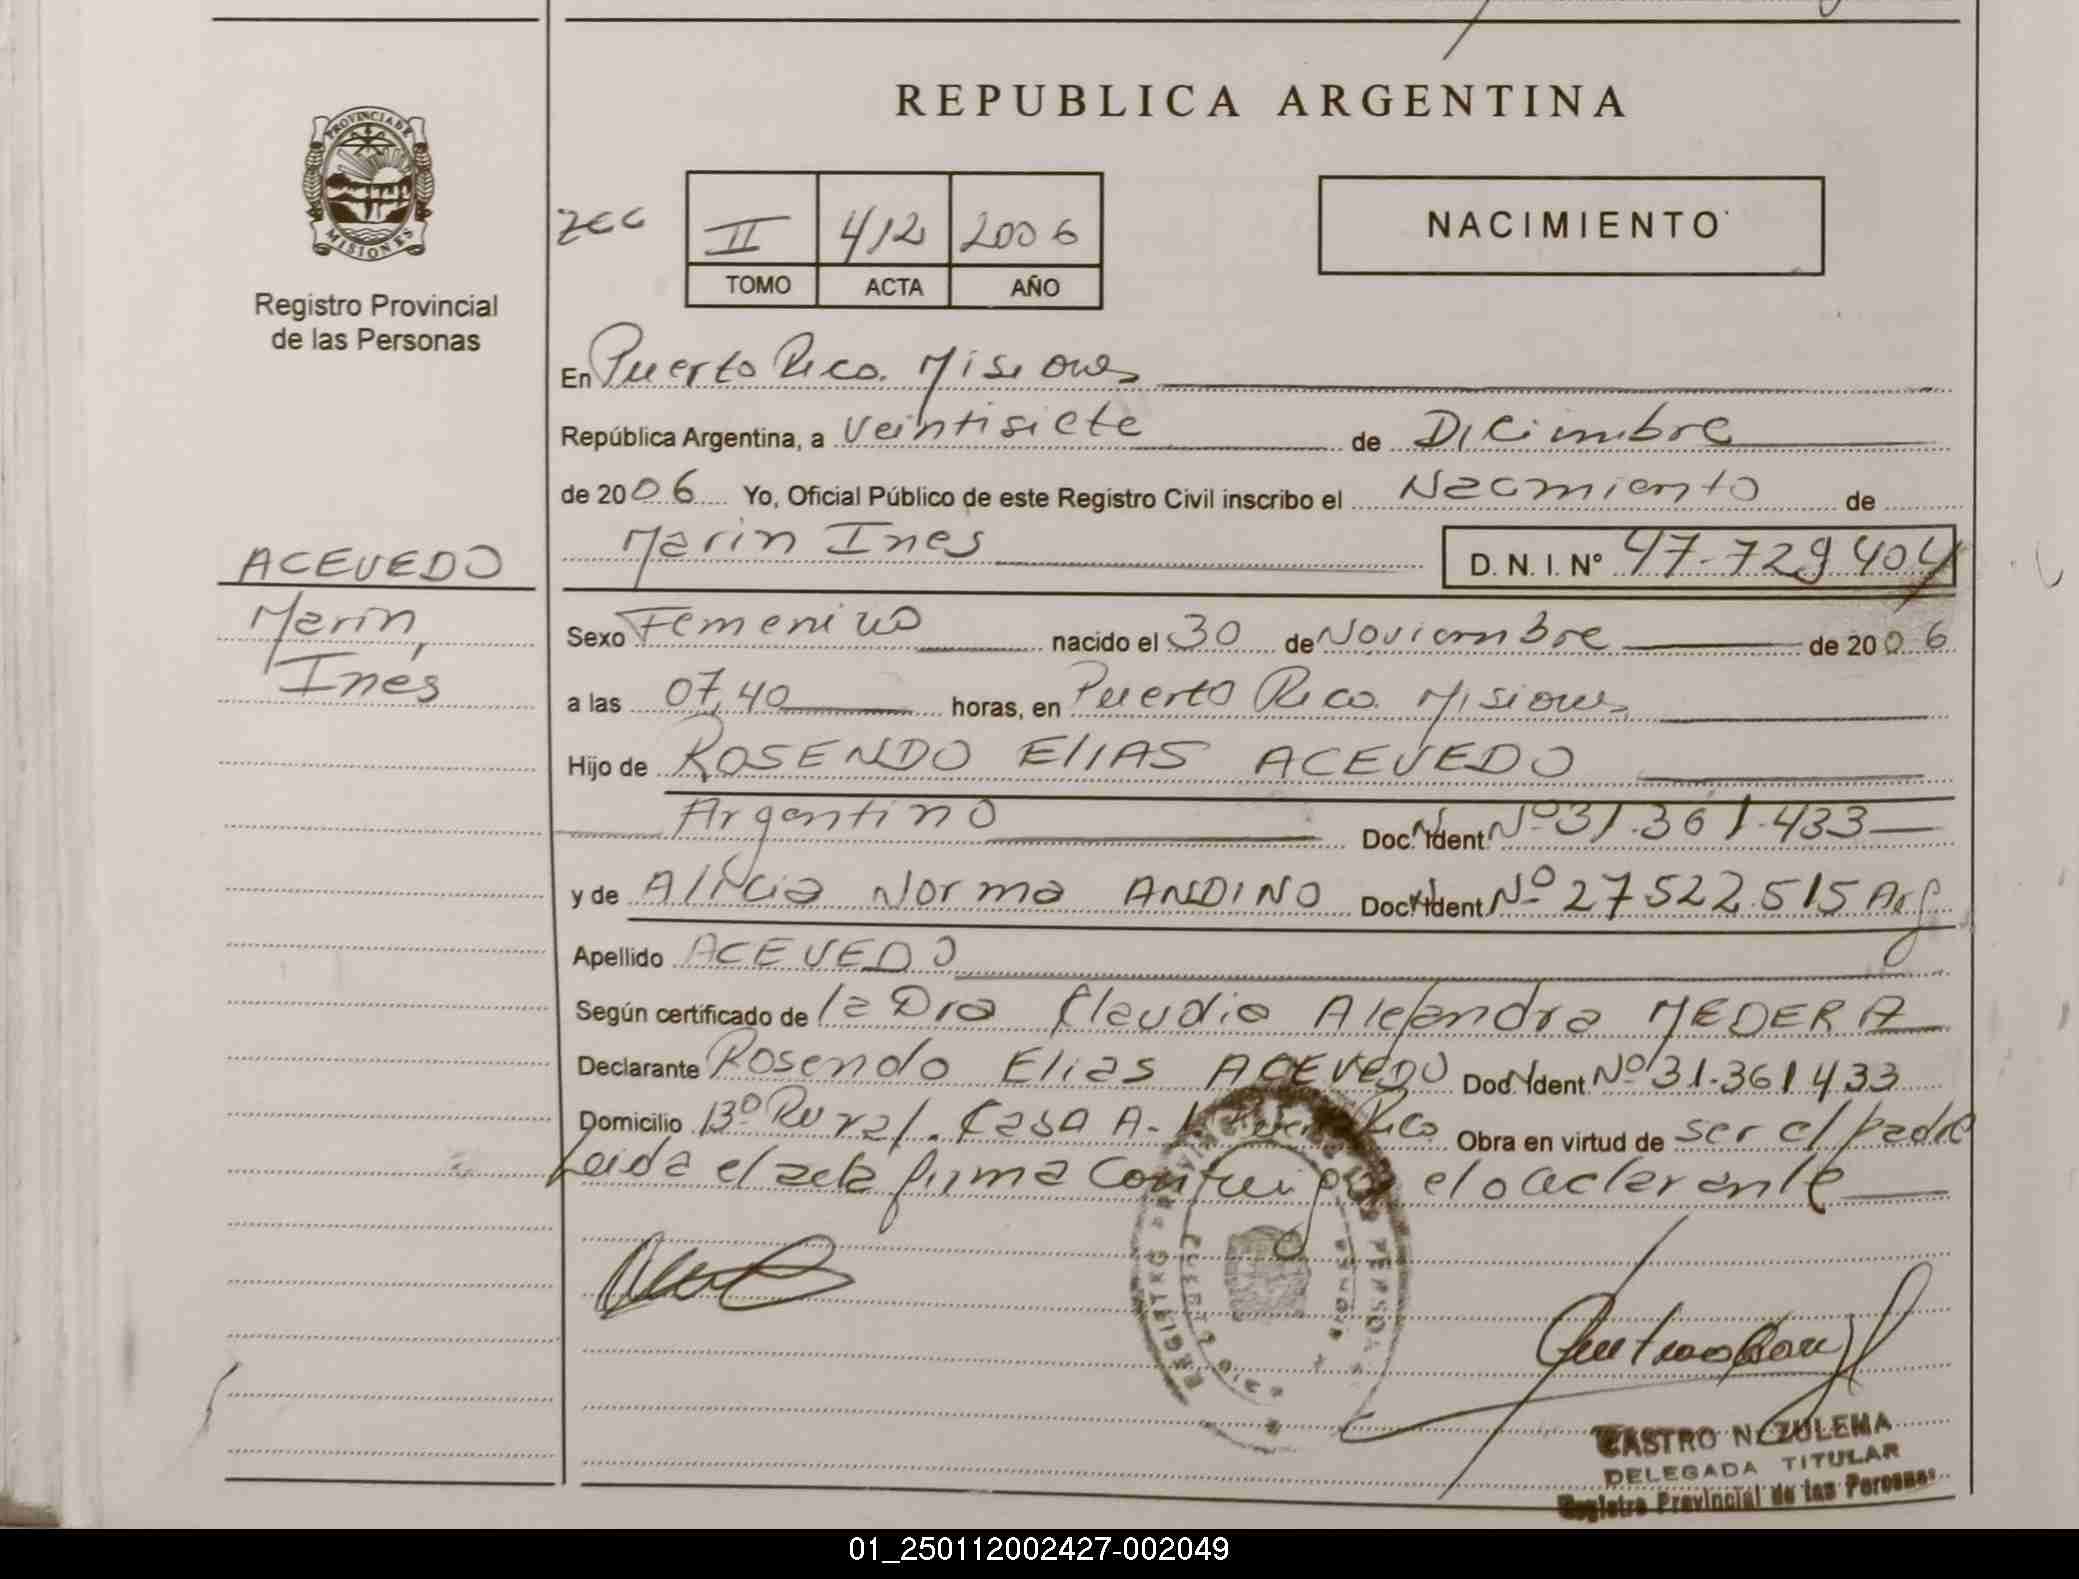 REPUBLICA ARGENTINA
PROVINCIA DE
MISIONES
Registro Provincial
de las Personas
II 412 2006
TOMO ACTA AÑO
NACIMIENTO
En Puerto Rico. Misiones
República Argentina, a Veintisiete de Diciembre
de 2006 Yo, Oficial Público de este Registro Civil inscribo el Nacimiento de
Marin Ines D. N. I. Nº 47-729404
ACEVEDO
Marin,
Ines
Sexo Femenino nacido el 30 de Noviembre de 2006
a las 07,40 horas, en Puerto Rico. Misiones
Hijo de ROSENDO ElIAS ACEVEDO
Argentino Doc. Ident. Nº 31.361.433
y de Alicia Norma ANDINO Doc. Ident. Nº 27522.515 Arg
Apellido ACEVEDO
Según certificado de la Dra Claudia Alejandra MEDERA
Declarante Rosendo Elias ACEVEDO Doc. Ident. Nº 31.361433
Domicilio Bº Rural. Casa A- Rico Obra en virtud de ser el padre
Leida el acta firma el declarante
CASTRO N. ZULEMA
DELEGADA TITULAR
Registro Provincial de las Personas
01_250112002427-002049